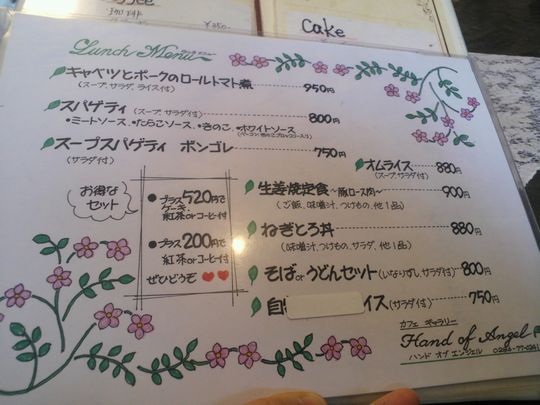 Cake
¥350
Lunch Menu ランチメニュー
キャベツとポークのロールトマト煮 950円
(スープ、サラダ、ライス付)
スパゲティ (スープ、サラダ付) 800円
・ミートソース、・たらこソース、・きのこ、・ホワイトソース
スープスパゲティ ボンゴレ 750円
(サラダ付)
オムライス 880円
(スープ、サラダ付)
お得な
セット
●プラス520円で
ケーキ
紅茶orコーヒー付
●プラス200円で
紅茶orコーヒー付
ぜひどうぞ ♥♥
生姜焼定食 〜豚ロース肉〜 900円
(ご飯、味噌汁、つけもの、他1品)
ねぎとろ丼 880円
(味噌汁、つけもの、サラダ、他1品)
そばorうどんセット (いなりずし、サラダ付) 800円
自 イス (サラダ付) 750円
カフェ ギャラリー
Hand of Angel
ハンド オブ エンジェル